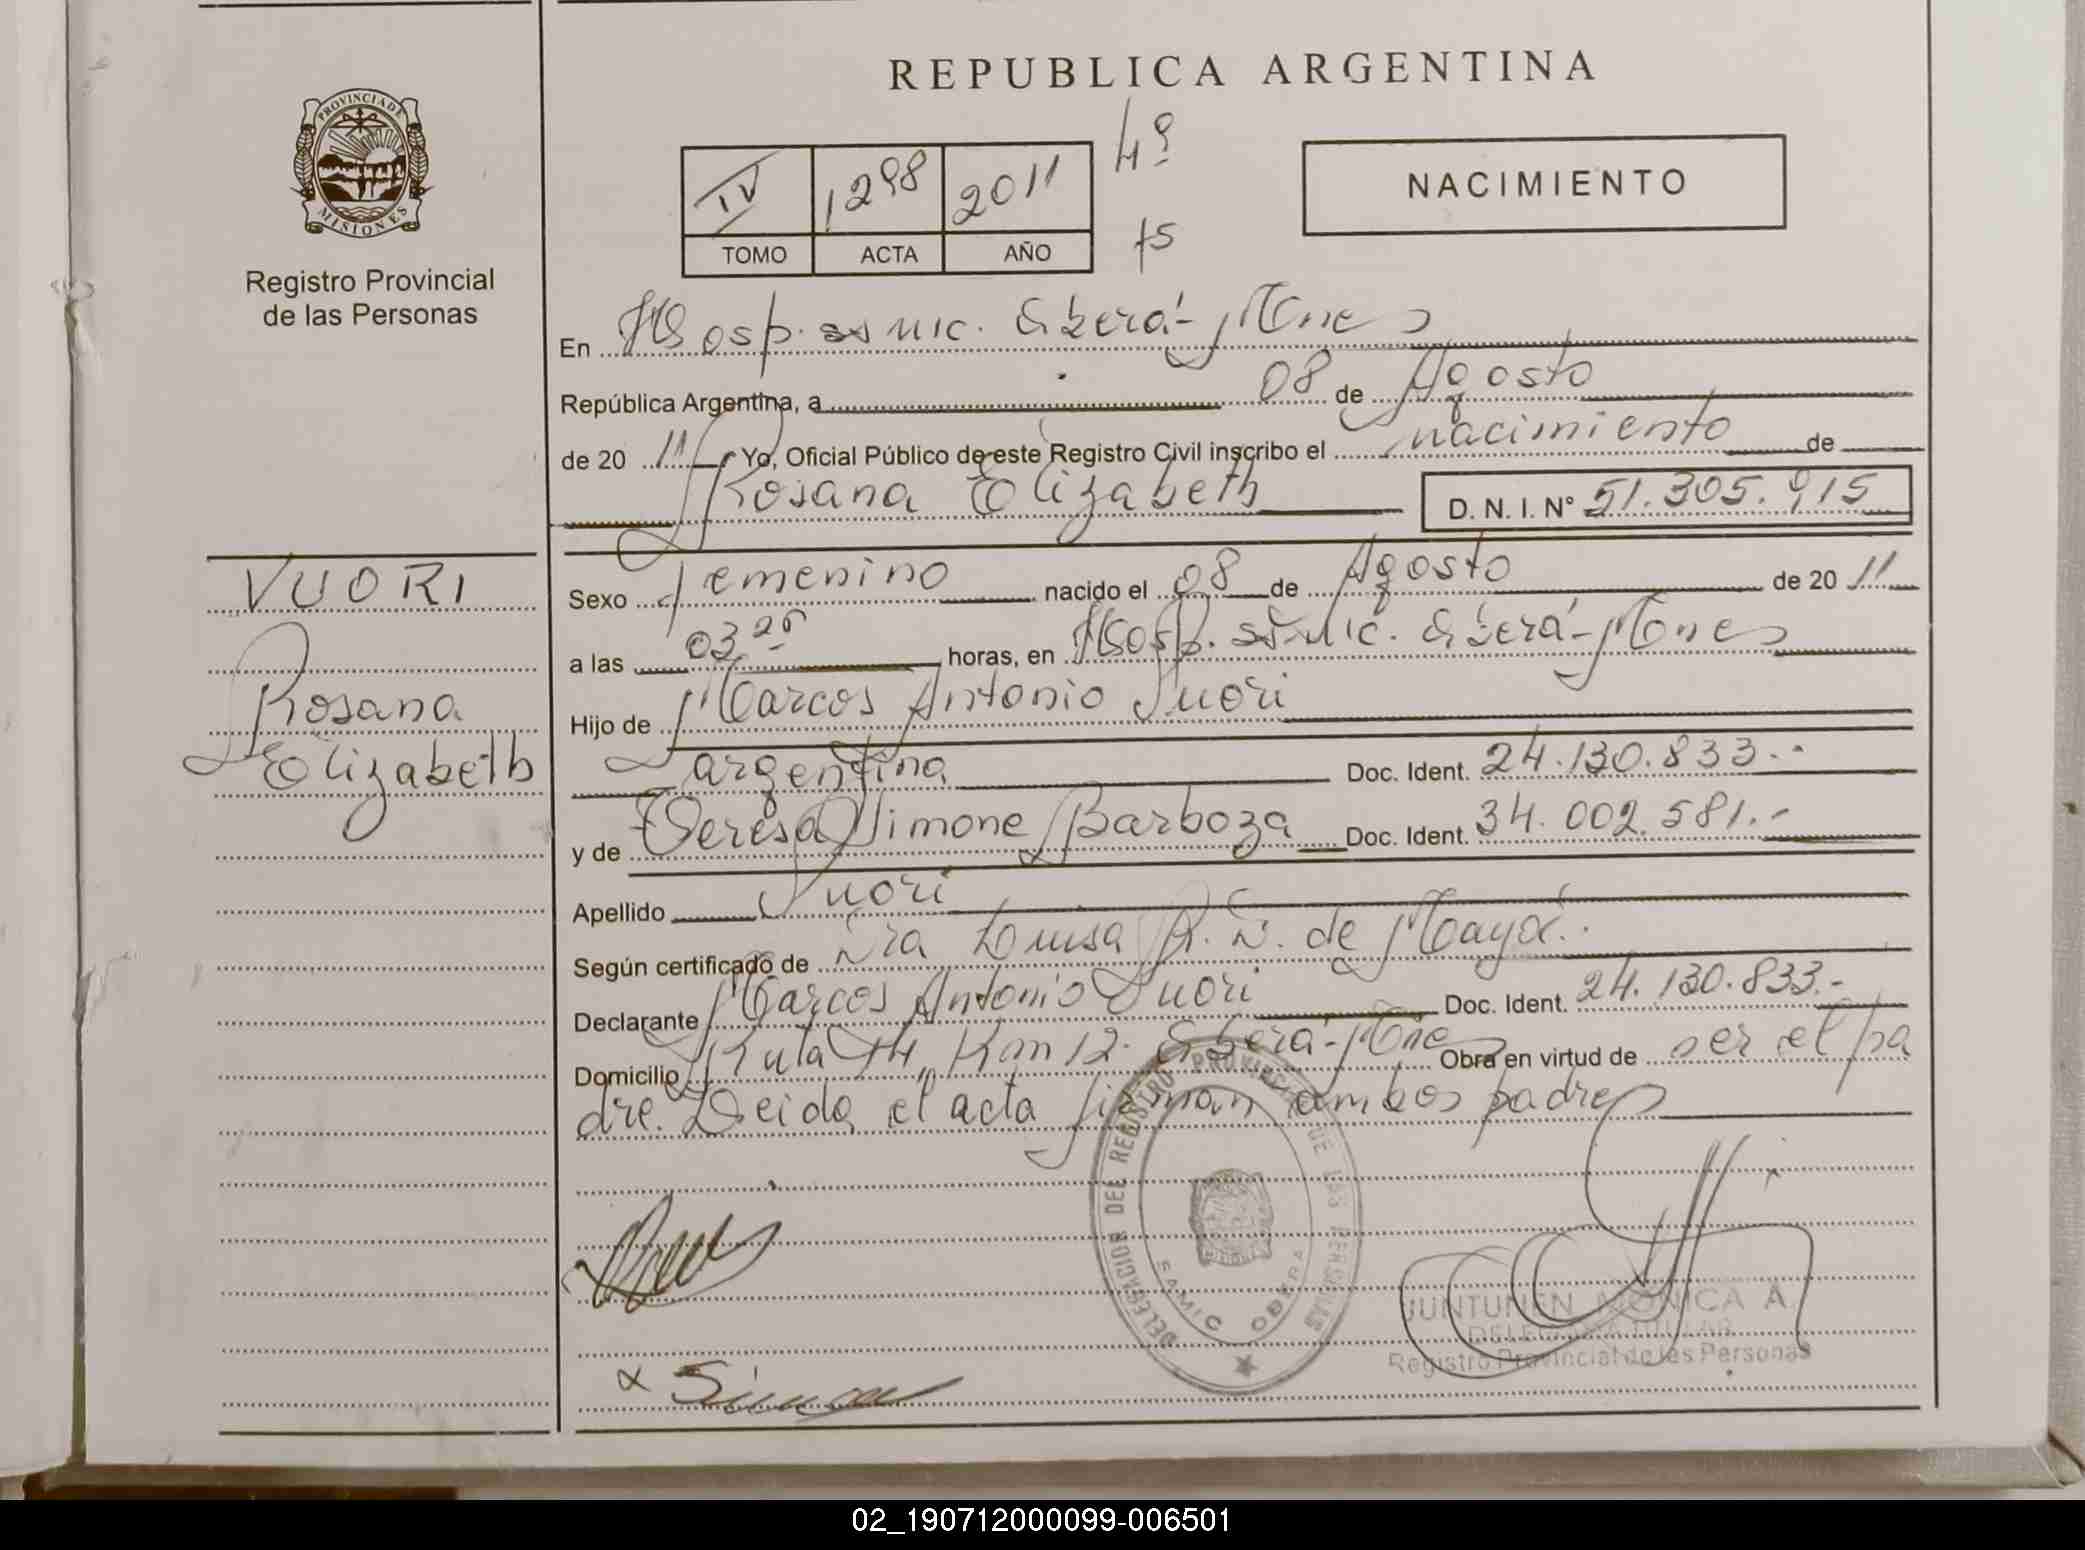 REPUBLICA ARGENTINA
PROVINCIA DE
MISIONES
Registro Provincial
de las Personas
IV 1298 2011 4º
TOMO ACTA AÑO 75
NACIMIENTO
En Hosp. ss mic. Oberá- Mnes
República Argentina, a 08 de Agosto
de 20 11 Yo, Oficial Público de este Registro Civil inscribo el nacimiento de
Rosana Elizabeth D. N. I. Nº 51.305.915
VUORI
Rosana
Elizabeth
Sexo femenino nacido el 08 de Agosto de 20 11
a las 03 25 horas, en Hosp. ss mic. Oberá- Mnes
Hijo de Marcos Antonio Vuori
argentina Doc. Ident. 24.130.833.-
y de Teresa Simone Barboza Doc. Ident. 34.002.581.-
Apellido Vuori
Según certificado de Dra Luisa R. D. de Maya.
Declarante Marcos Antonio Vuori Doc. Ident. 24.130.833.-
Domicilio Ruta 14 Km 12. Oberá- Mnes Obra en virtud de ser el pa
dre. Leida el acta firman ambos padres
DELEGACION DEL REGISTRO PROVINCIAL DE LAS PERSONAS
SAMIC OBERA
JUNTUNEN MONICA A
DELEGADA TITULAR
Registro Provincial de las Personas
x Simone
02_190712000099-006501